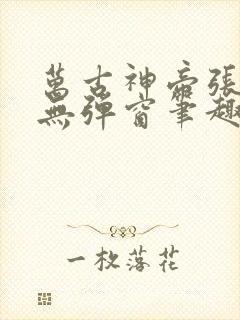 萬古神帝張
無彈窗筆趣
一枚落花